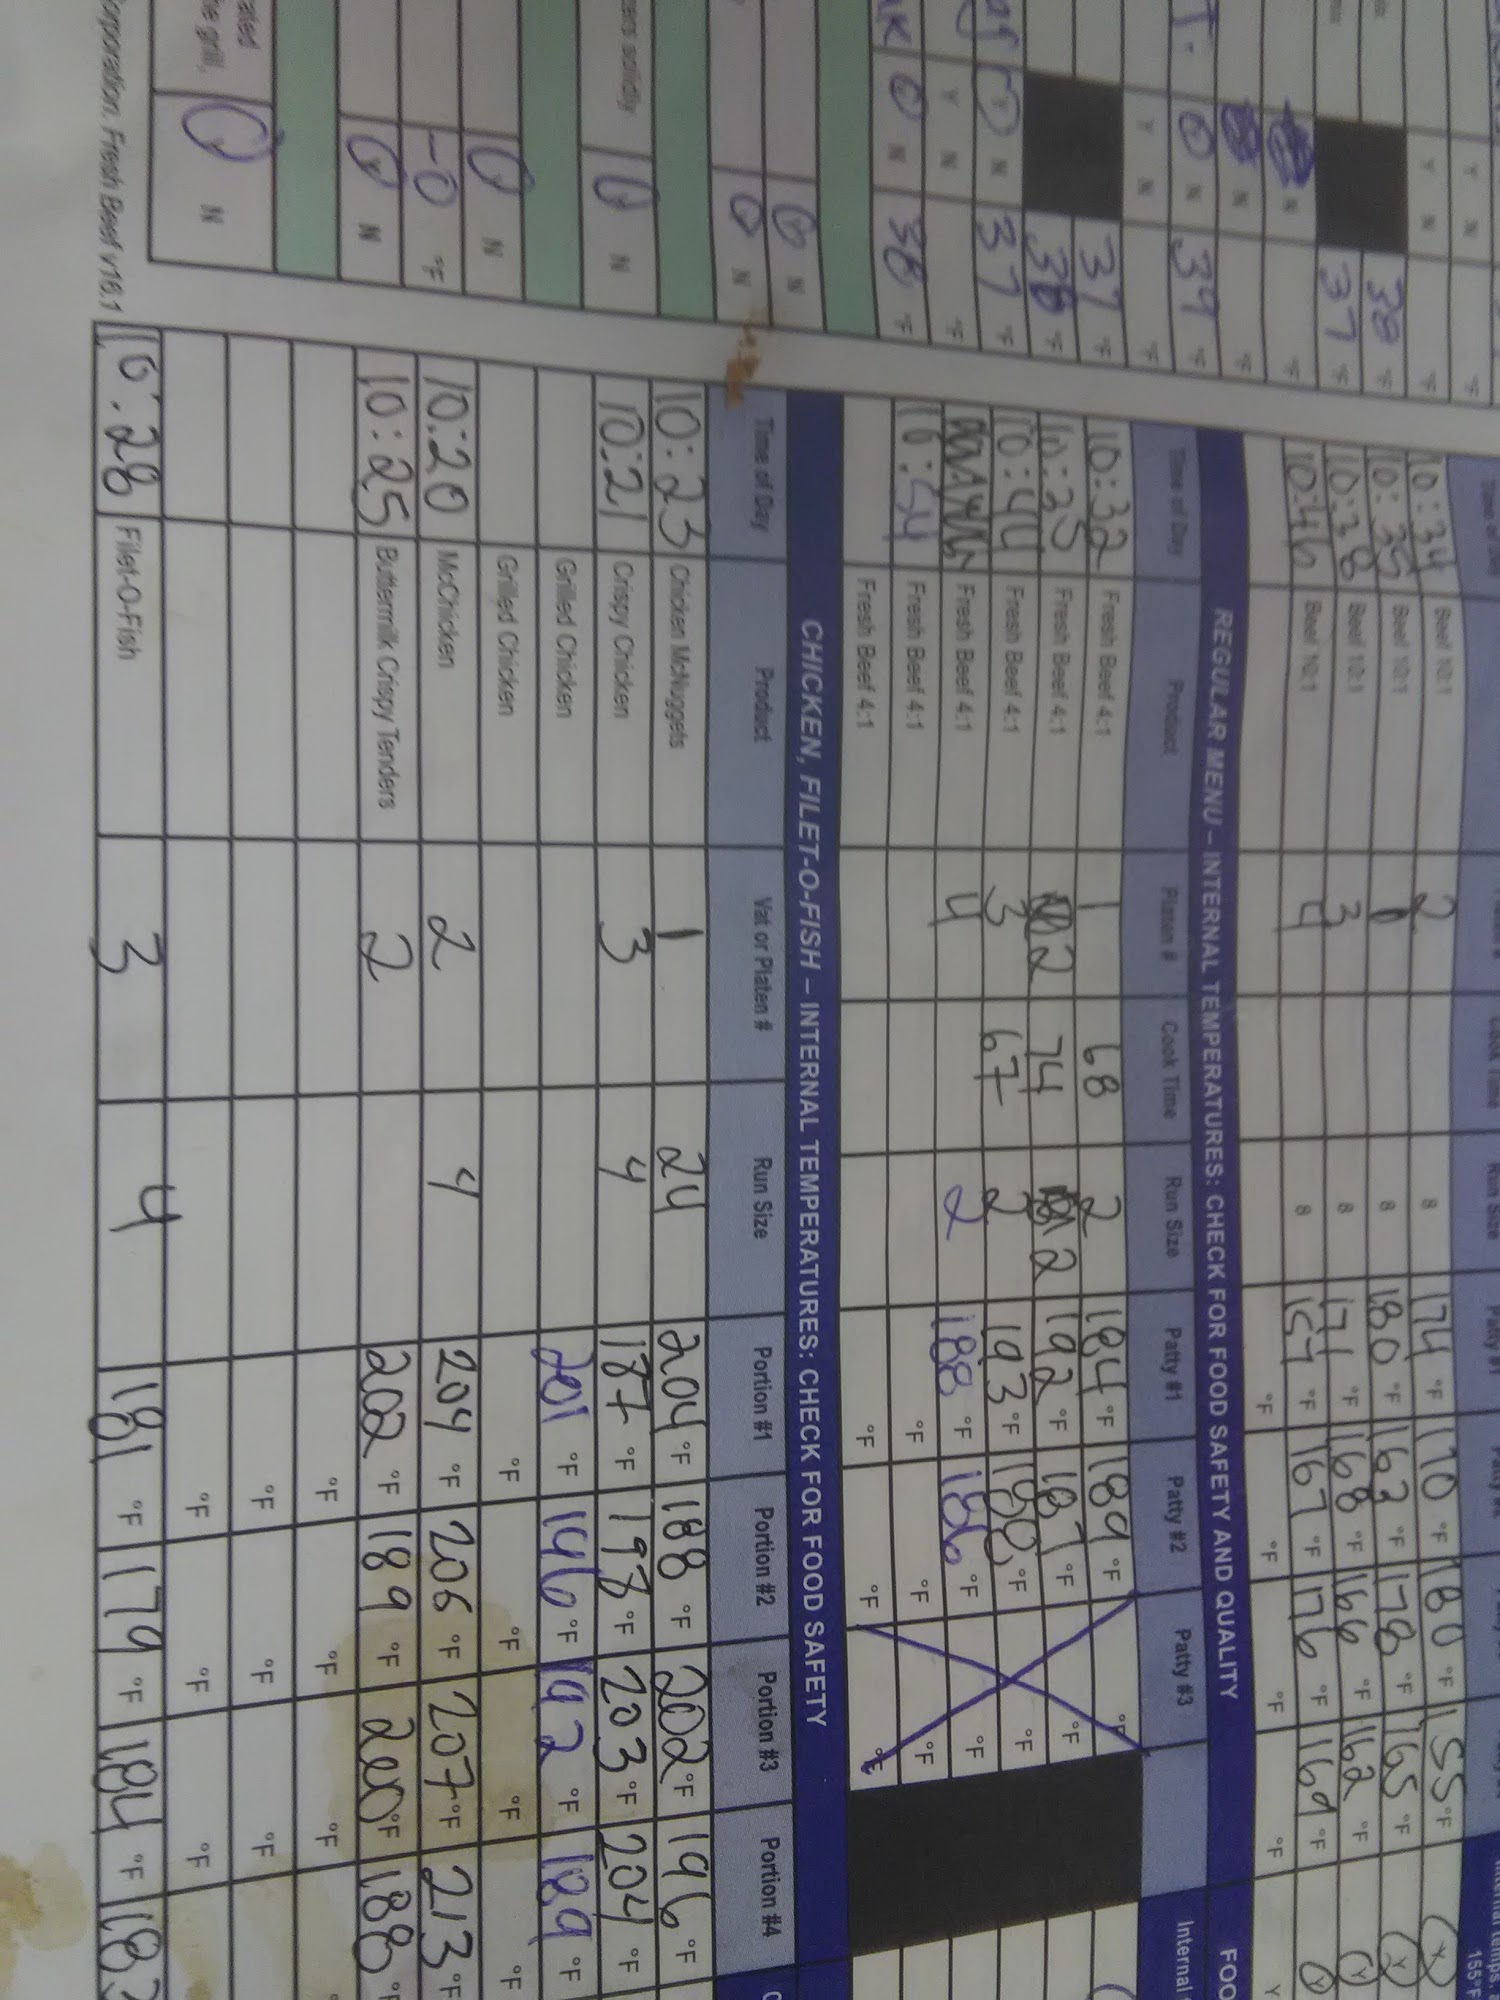 Time of Day Product Platen # Cook Time Run Size Patty #1 Patty #2
10:34 Beef 10:1 2 8 174 °F 170 °F 180 °F 155 °F Y
10:35 Beef 10:1 1 8 180 °F 162 °F 178 °F 165 °F Y
10:38 Beef 10:1 3 8 171 °F 168 °F 166 °F 162 °F Y
10:46 Beef 10:1 4 8 157 °F 167 °F 176 °F 169 °F Y
°F °F °F °F Y
REGULAR MENU – INTERNAL TEMPERATURES: CHECK FOR FOOD SAFETY AND QUALITY FOO
Time of Day Product Platen # Cook Time Run Size Patty #1 Patty #2 Patty #3 Internal
10:32 Fresh Beef 4:1 1 68 2 184 °F 189 °F °F
10:35 Fresh Beef 4:1 2 74 2 192 °F 187 °F °F
10:44 Fresh Beef 4:1 3 67 2 193 °F 188 °F °F
Fresh Beef 4:1 4 2 188 °F 186 °F °F
10:54 Fresh Beef 4:1 °F °F °F
Fresh Beef 4:1 °F °F °F
CHICKEN, FILET-O-FISH – INTERNAL TEMPERATURES: CHECK FOR FOOD SAFETY
Time of Day Product Vat or Platen # Run Size Portion #1 Portion #2 Portion #3 Portion #4
10:23 Chicken McNuggets 1 24 204 °F 188 °F 202 °F 196 °F
10:21 Crispy Chicken 3 4 187 °F 198 °F 203 °F 204 °F
Grilled Chicken 201 °F 196 °F 192 °F 189 °F
Grilled Chicken °F °F °F °F
10:20 McChicken 2 4 204 °F 206 °F 207 °F 213 °F
10:25 Buttermilk Crispy Tenders 2 202 °F 189 °F 200 °F 188 °F
°F °F °F
°F °F °F
°F °F °F
10:28 Filet-O-Fish 3 4 181 °F 179 °F 184 °F
Y N °F
Y N °F
38 °F
37 °F
N °F
N °F
N 39 °F
Y N °F
37 °F
38 °F
Y N 37 °F
Y N °F
N 38 °F
N
N
zers solidly N
N
-0 °F
N
the grill, N
orporation. Fresh Beef v16.1